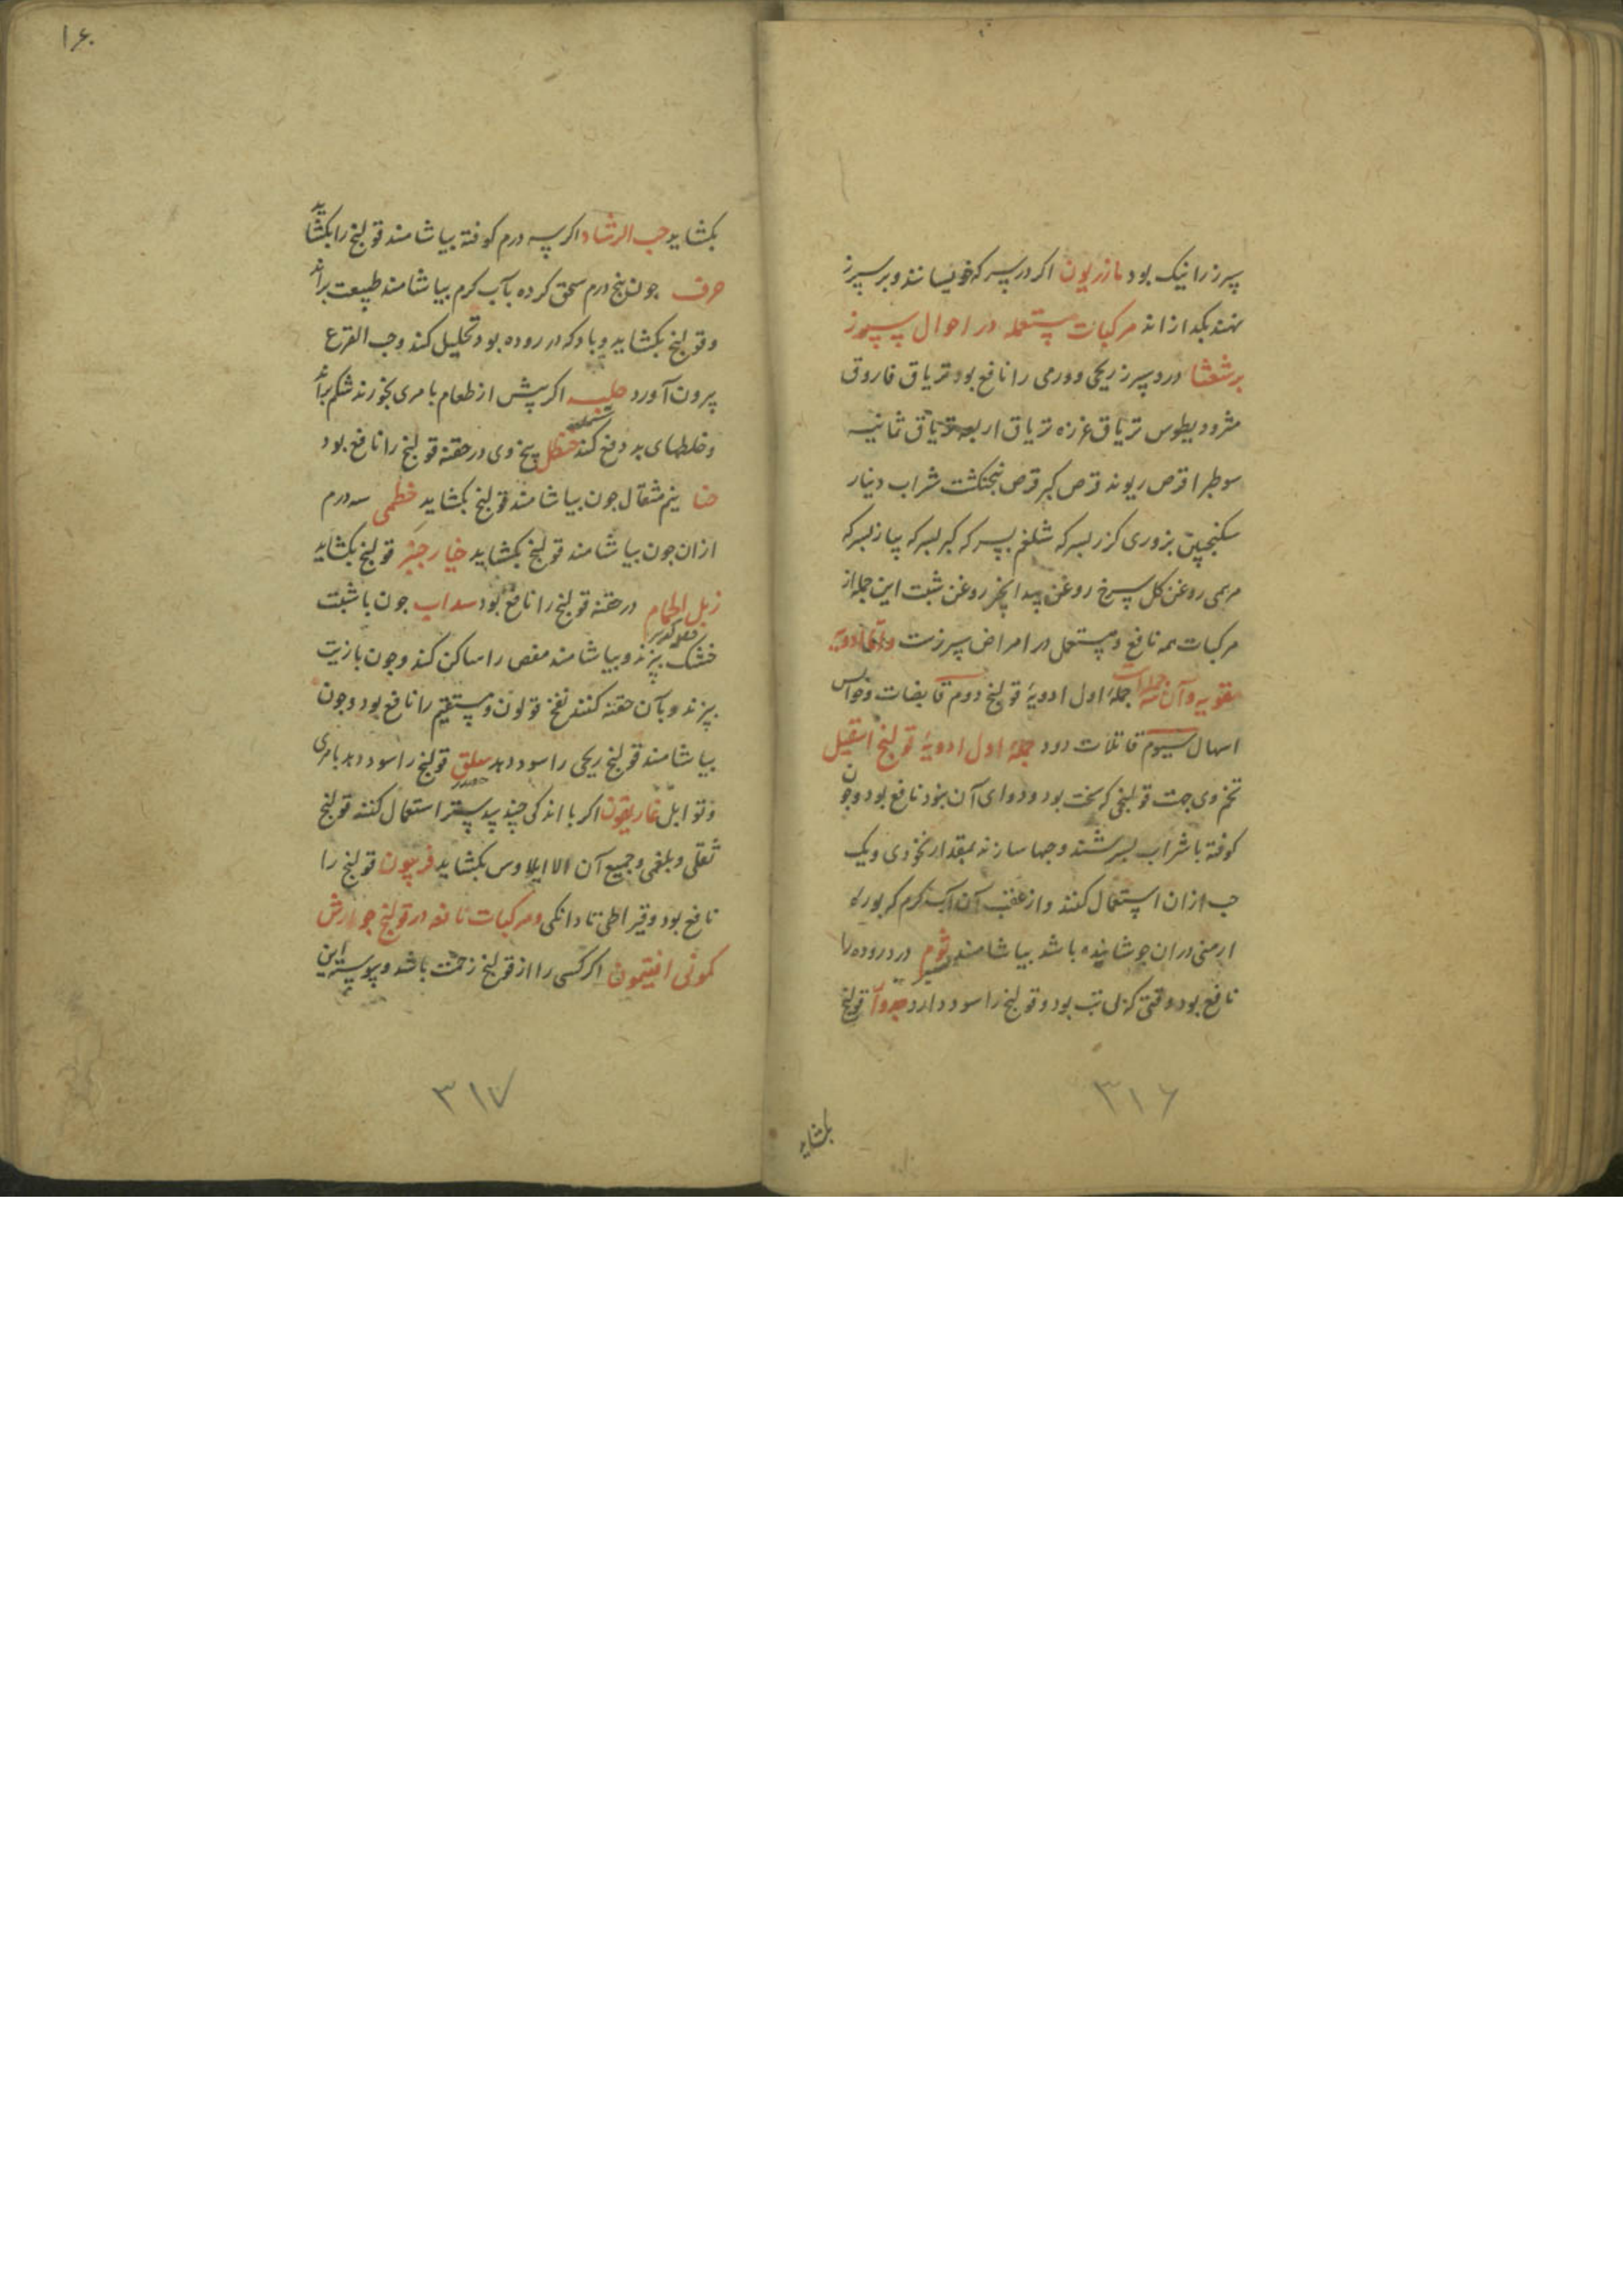 سپرز را نیک بود مازریون اکر در سرکه خویسانند و بر سپرز
نهند بکدازاند مرکبات مستعمله در احوال سپرز
برشعثا درد سپرز ریحی و ورمی را نافع بود تریاق فاروق
مثرودیطوس تریاق غرزه تریاق اربعه تریاق ثمانیه
سوطیرا قرص ریوند قرص کبر قرص پنجنکشت شراب دینار
سکنجبین بزوری کزر بسرکه شلغم بسرکه کبر بسرکه پیاز بسرکه
مرهمی روغن کل سرخ روغن بیدانجیر روغن شبت این جمله از
مرکبات همه نافع و مستعمل در امراض سپرزست واما ادویه
مقویه وآن سه جمله است جملهٔ اول ادویهٔ قولنج دوم قابضات وحوابس
اسهال سیوم قاتلات دود جملهٔ اول ادویهٔ قولنج اسقیل
تخم وی جهت قولنجی که سخت بود و دوای آن نبود نافع بود وچون
کوفته با شراب بسرشند و حبها سازند بمقدار نخودی ویک
حب ازان استعمال کنند و از عقب آن آب کرم که بوره
ارمنی دران جوشانیده باشد بیاشامند ثوم درد روده را
نافع بود وقتی که بی تب بود و قولنج را سود دارد جدوار قولنج
بکشاید
۳۱۶
۱۶۰
بکشاید حب الرشاد اکر سه درم کوفته بیاشامند قولنج را بکشاید
حرف جون پنج درم سحق کرده بآب کرم بیاشامند طبیعت براند
وقولنج بکشاید و بادکه در روده بود تحلیل کند وحب القرع
بیرون آورد حلبه اکر پیش از طعام با مری بخورند شکم براند
وخلطهای بد دفع کند حنظل بیخ وی در حقنه قولنج را نافع بود
حنا نیم مثقال جون بیاشامند قولنج بکشاید خطمی سه درم
ازان جون بیاشامند قولنج بکشاید خیارجنبر قولنج بکشاید
زبل الحمام در حقنه قولنج را نافع بود سداب جون با شبت
خشک بپزند و بیاشامند مغص را ساکن کند وجون با زیت
بپزند و بآن حقنه کنند نفخ قولون و مستقیم را نافع بود وجون
بیاشامند قولنج ریحی را سود دهد سلق قولنج را سود دهد با مری
وتوابل غاریقون اکر با اندکی جند بیدستر استعمال کنند قولنج
ثفلی و بلغمی و جمیع آن الا ایلاوس بکشاید فربیون قولنج را
نافع بود و قیراطی تا دانکی ومرکبات نافعه در قولنج جوارش
کمونی افتیمون اکر کسی را از قولنج زحمت باشد و پیوسته این
۳۱۷